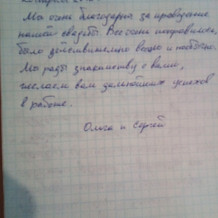 Мы очень благодарны за проведение
нашей свадьбы. Все очень понравилось,
было действительно весело и необычно.
Мы рады знакомству с вами,
желаем вам дальнейших успехов
в работе.
Ольга и Сергей